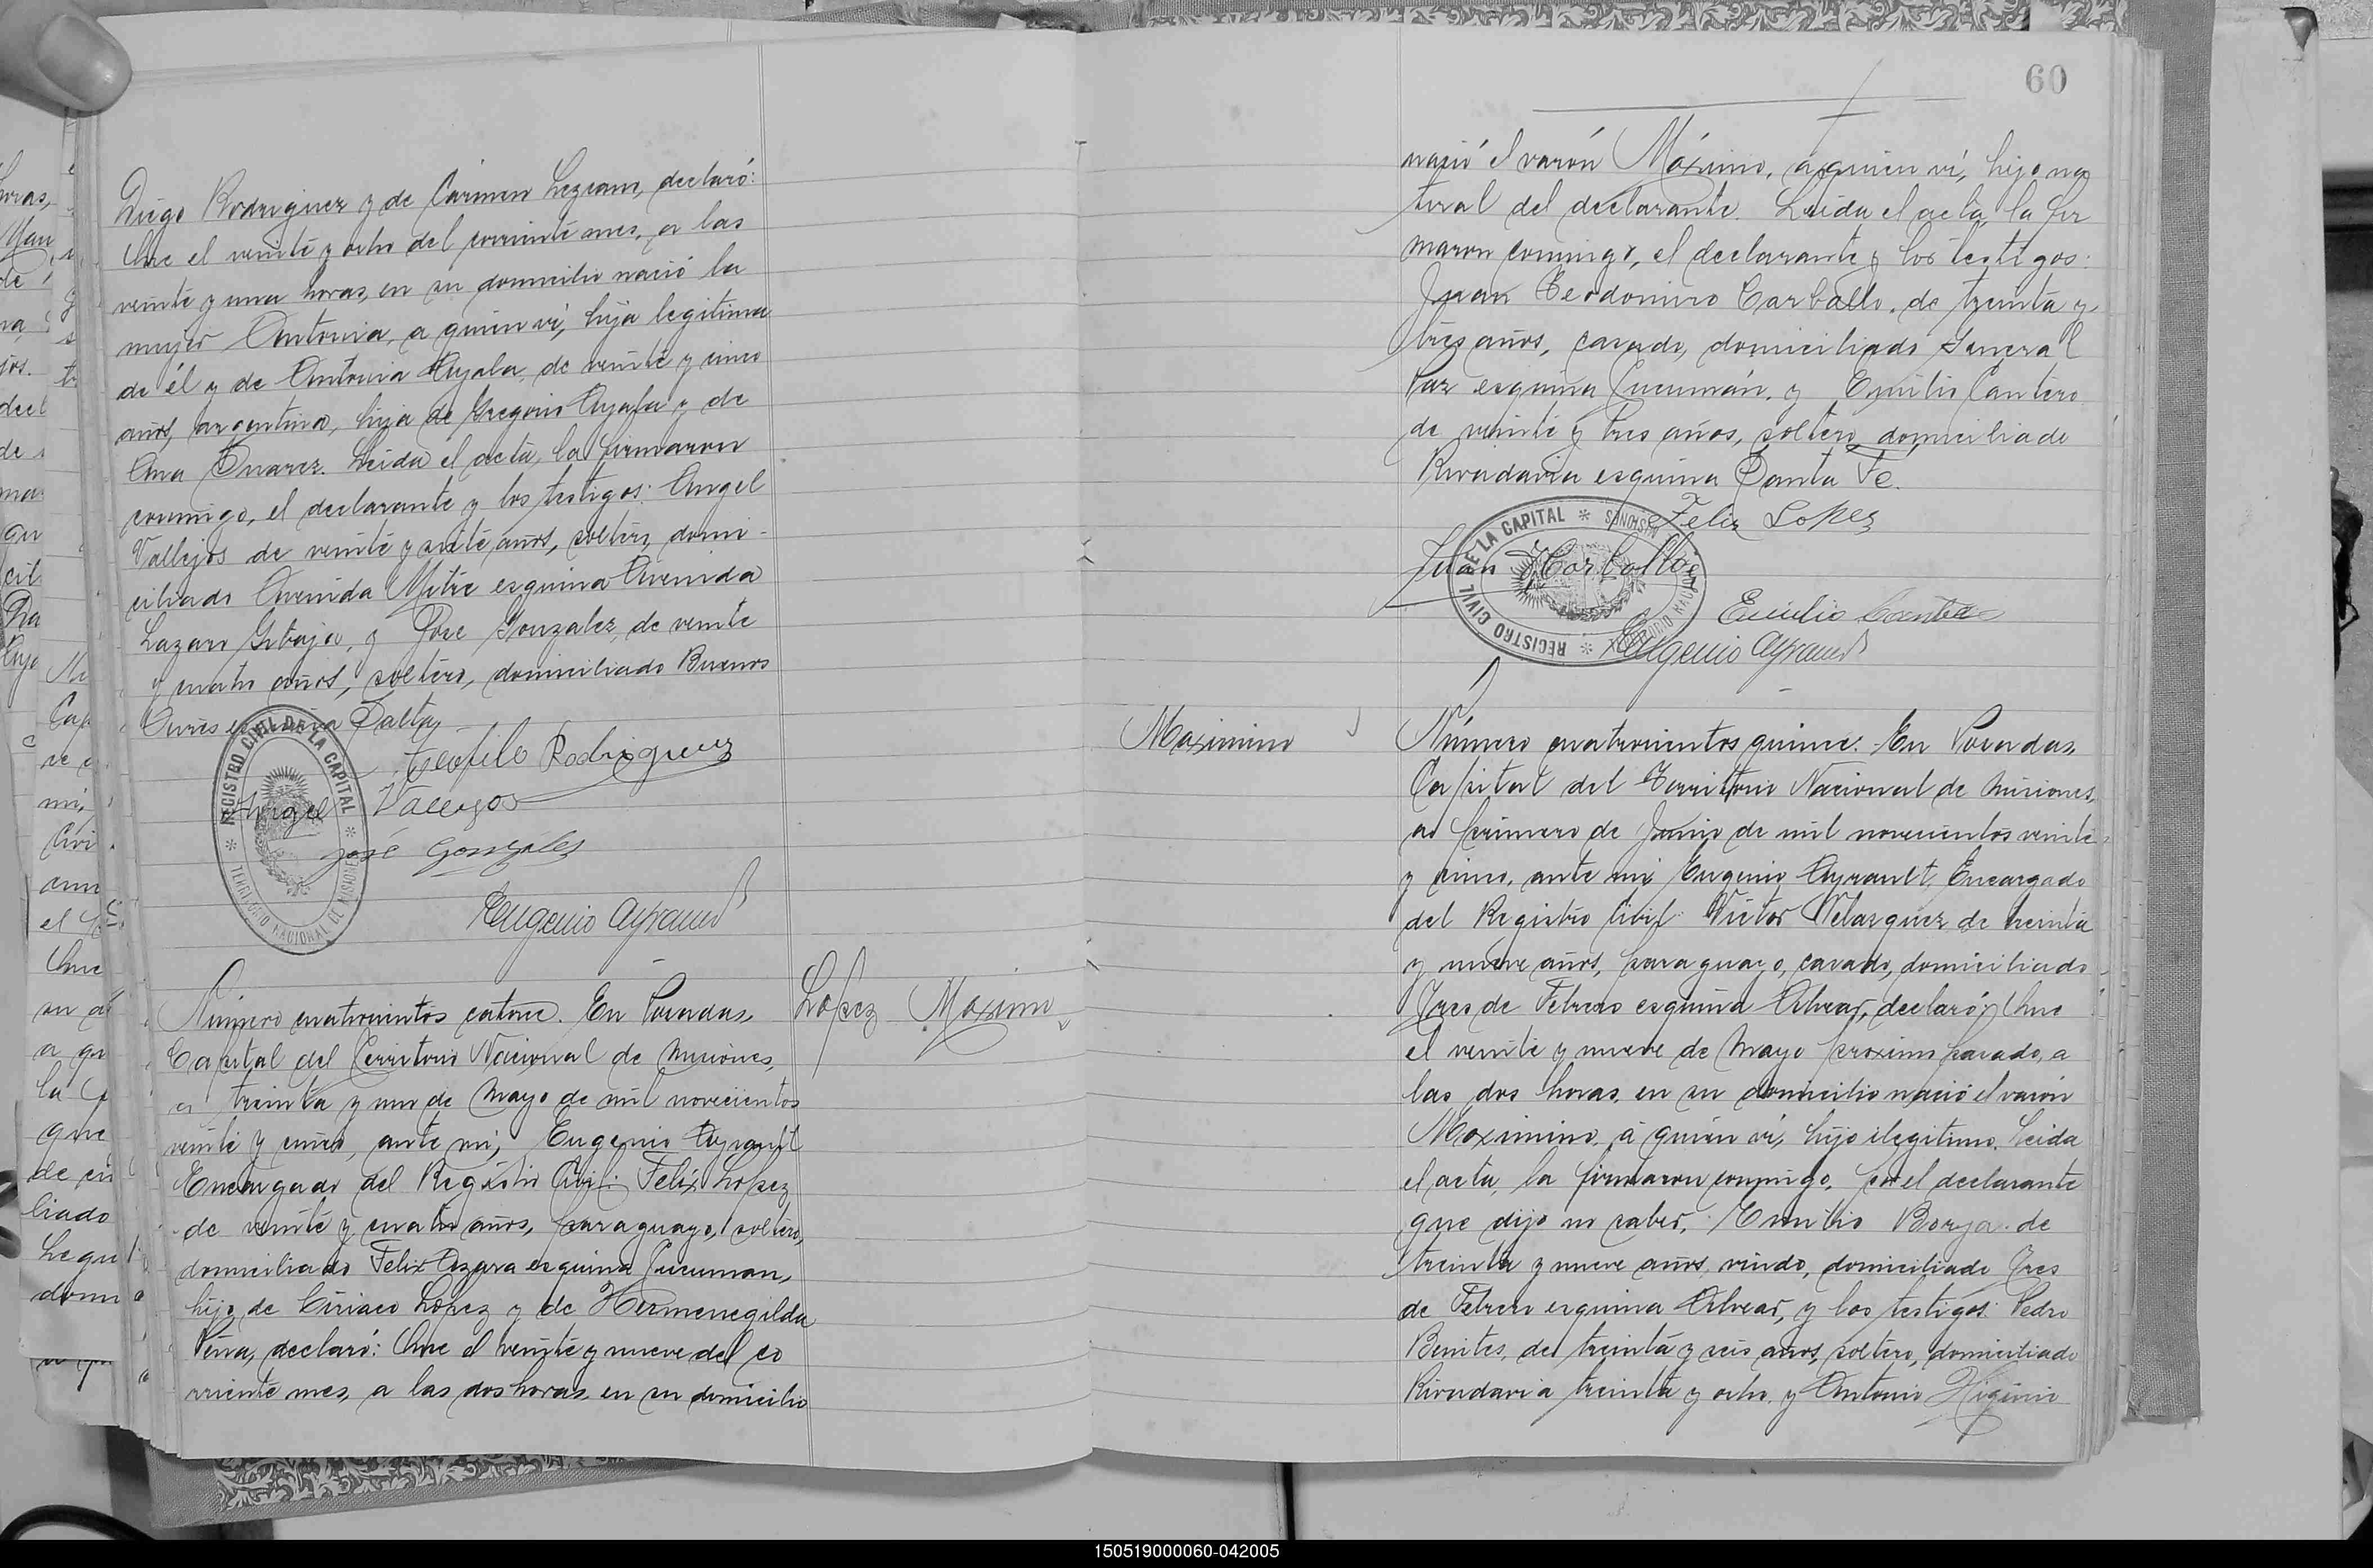 Diego Rodriguez y de Carmen Lezcano, declaró:
Que el veinte y ocho del corriente mes, a las
veinte y una horas, en su domicilio nació la
mujer Antonia, a quien ví, hija legitima
de él y de Antonia Ayala, de veinte y cinco
años, argentina, hija de Gregorio Ayala y de
Ana Suarez. Leida el acta, la firmaron
conmigo, el declarante y los testigos: Angel
Vallejos de veinte y siete años, soltero, domi-
ciliado Avenida Mitre esquina Avenida
Lazaro Gibaja, y José Gonzalez, de veinte
y cuatro años, soltero, domiciliado Buenos
Aires esquina Salta,
Teofilo Rodriguez
Angel Vallejos
José Gonzáles
Eugenio Ayrault
REGISTRO CIVIL DE LA CAPITAL * TERRITORIO NACIONAL DE MISIONES *
López Maximo
Número cuatrocientos catorce. En Posadas,
Capital del Territorio Nacional de Misiones,
a treinta y uno de Mayo de mil novecientos
veinte y cinco, ante mi, Eugenio Ayrault
Encargado del Registro Civil: Felix Lopez
de veinte y cuatro años, paraguayo, soltero,
domiciliado Felix Azara esquina Tucuman,
hijo de Ciriaco López y de Hermenegilda
Peña, declaró: Que el veinte y nueve del co
rriente mes, a las dos horas, en su domicilio
60
nació el varón Máximo, a quien ví, hijo na
tural del declarante. Leida el acta, la fir
maron conmigo, el declarante y los testigos:
Juan Teodomiro Carballo, de treinta y
tres años, casado, domiciliado General
Paz esquina Tucumán, y Emilio Cantero
de veinte y tres años, soltero, domiciliado
Rivadavia esquina Santa Fé.
Felix Lopez
Juan T Carballo
Emilio Cantero
Eugenio Ayrault
REGISTRO CIVIL DE LA CAPITAL * TERRITORIO NACIONAL MISIONES *
Maximino
Número cuatrocientos quince. En Posadas,
Capital del Territorio Nacional de Misiones,
a primero de Junio de mil novecientos veinte
y cinco, ante mi, Eugenio Ayrault, Encargado
del Registro Civil: Victor Velazquez, de treinta
y nueve años, paraguayo, casado, domiciliado
Tres de Febrero esquina Alvear, declaró: Que
el veinte y nueve de Mayo proximo pasado, a
las dos horas, en su domicilio nació el varón
Maximino, á quien ví, hijo ilegitimo. Leida
el acta, la firmaron conmigo, por el declarante
que dijo no saber, Emilio Borja de
treinta y nueve años, viudo, domiciliado Tres
de Febrero esquina Alvear, y los testigos: Pedro
Benites, de treinta y seis años, soltero, domiciliado
Rivadavia treinta y ocho, y Antonio Higinio
150519000060-042005